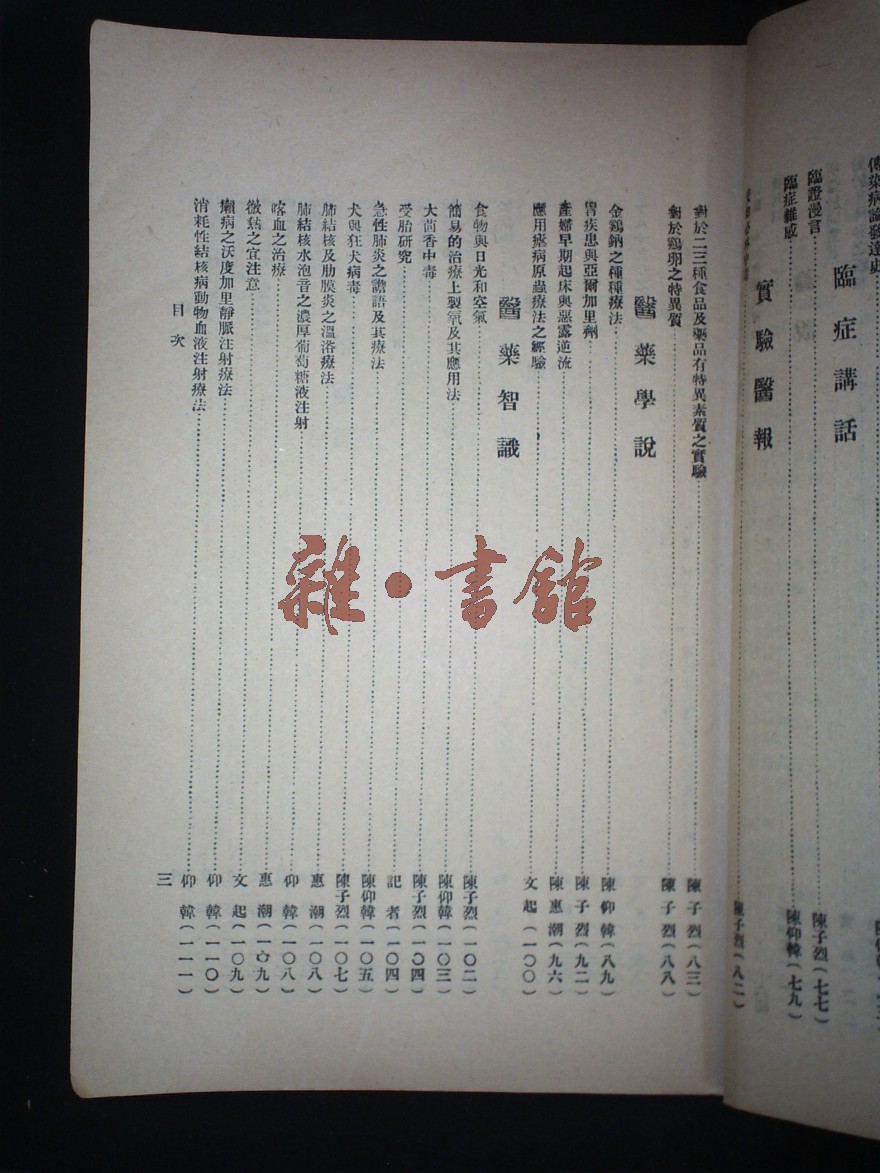 傳染病論發達史
臨症講話
臨證漫言 陳子烈(七七)
臨症雜感 陳仰韓(七九)
實驗醫報
陳子烈(八二)
對於二三種食品及藥品有特異素質之實驗 陳子烈(八三)
對於鷄卵之特異質 陳子烈(八八)
醫藥學說
金鷄鈉之種種療法 陳仰韓(八九)
胃疾患與亞爾加里劑 陳子烈(九二)
產婦早期起床與惡露逆流 陳惠潮(九六)
應用瘧病原蟲療法之經驗 文起(一〇〇)
醫藥智識
食物與日光和空氣 陳子烈(一〇二)
簡易的治療上製氧及其應用法 陳仰韓(一〇三)
大茴香中毒 陳子烈(一〇四)
受胎研究 記者(一〇四)
急性肺炎之譫語及其療法 陳仰韓(一〇五)
犬與狂犬病毒 陳子烈(一〇七)
肺結核及肋膜炎之溫浴療法 惠潮(一〇八)
肺結核水泡音之濃厚葡萄糖液注射 仰韓(一〇八)
喀血之治療 惠潮(一〇九)
微熱之宜注意 文起(一〇九)
癩病之沃度加里靜脈注射療法 仰韓(一一〇)
消耗性結核病動物血液注射療法 仰韓(一一一)
目次
三
雜·書館